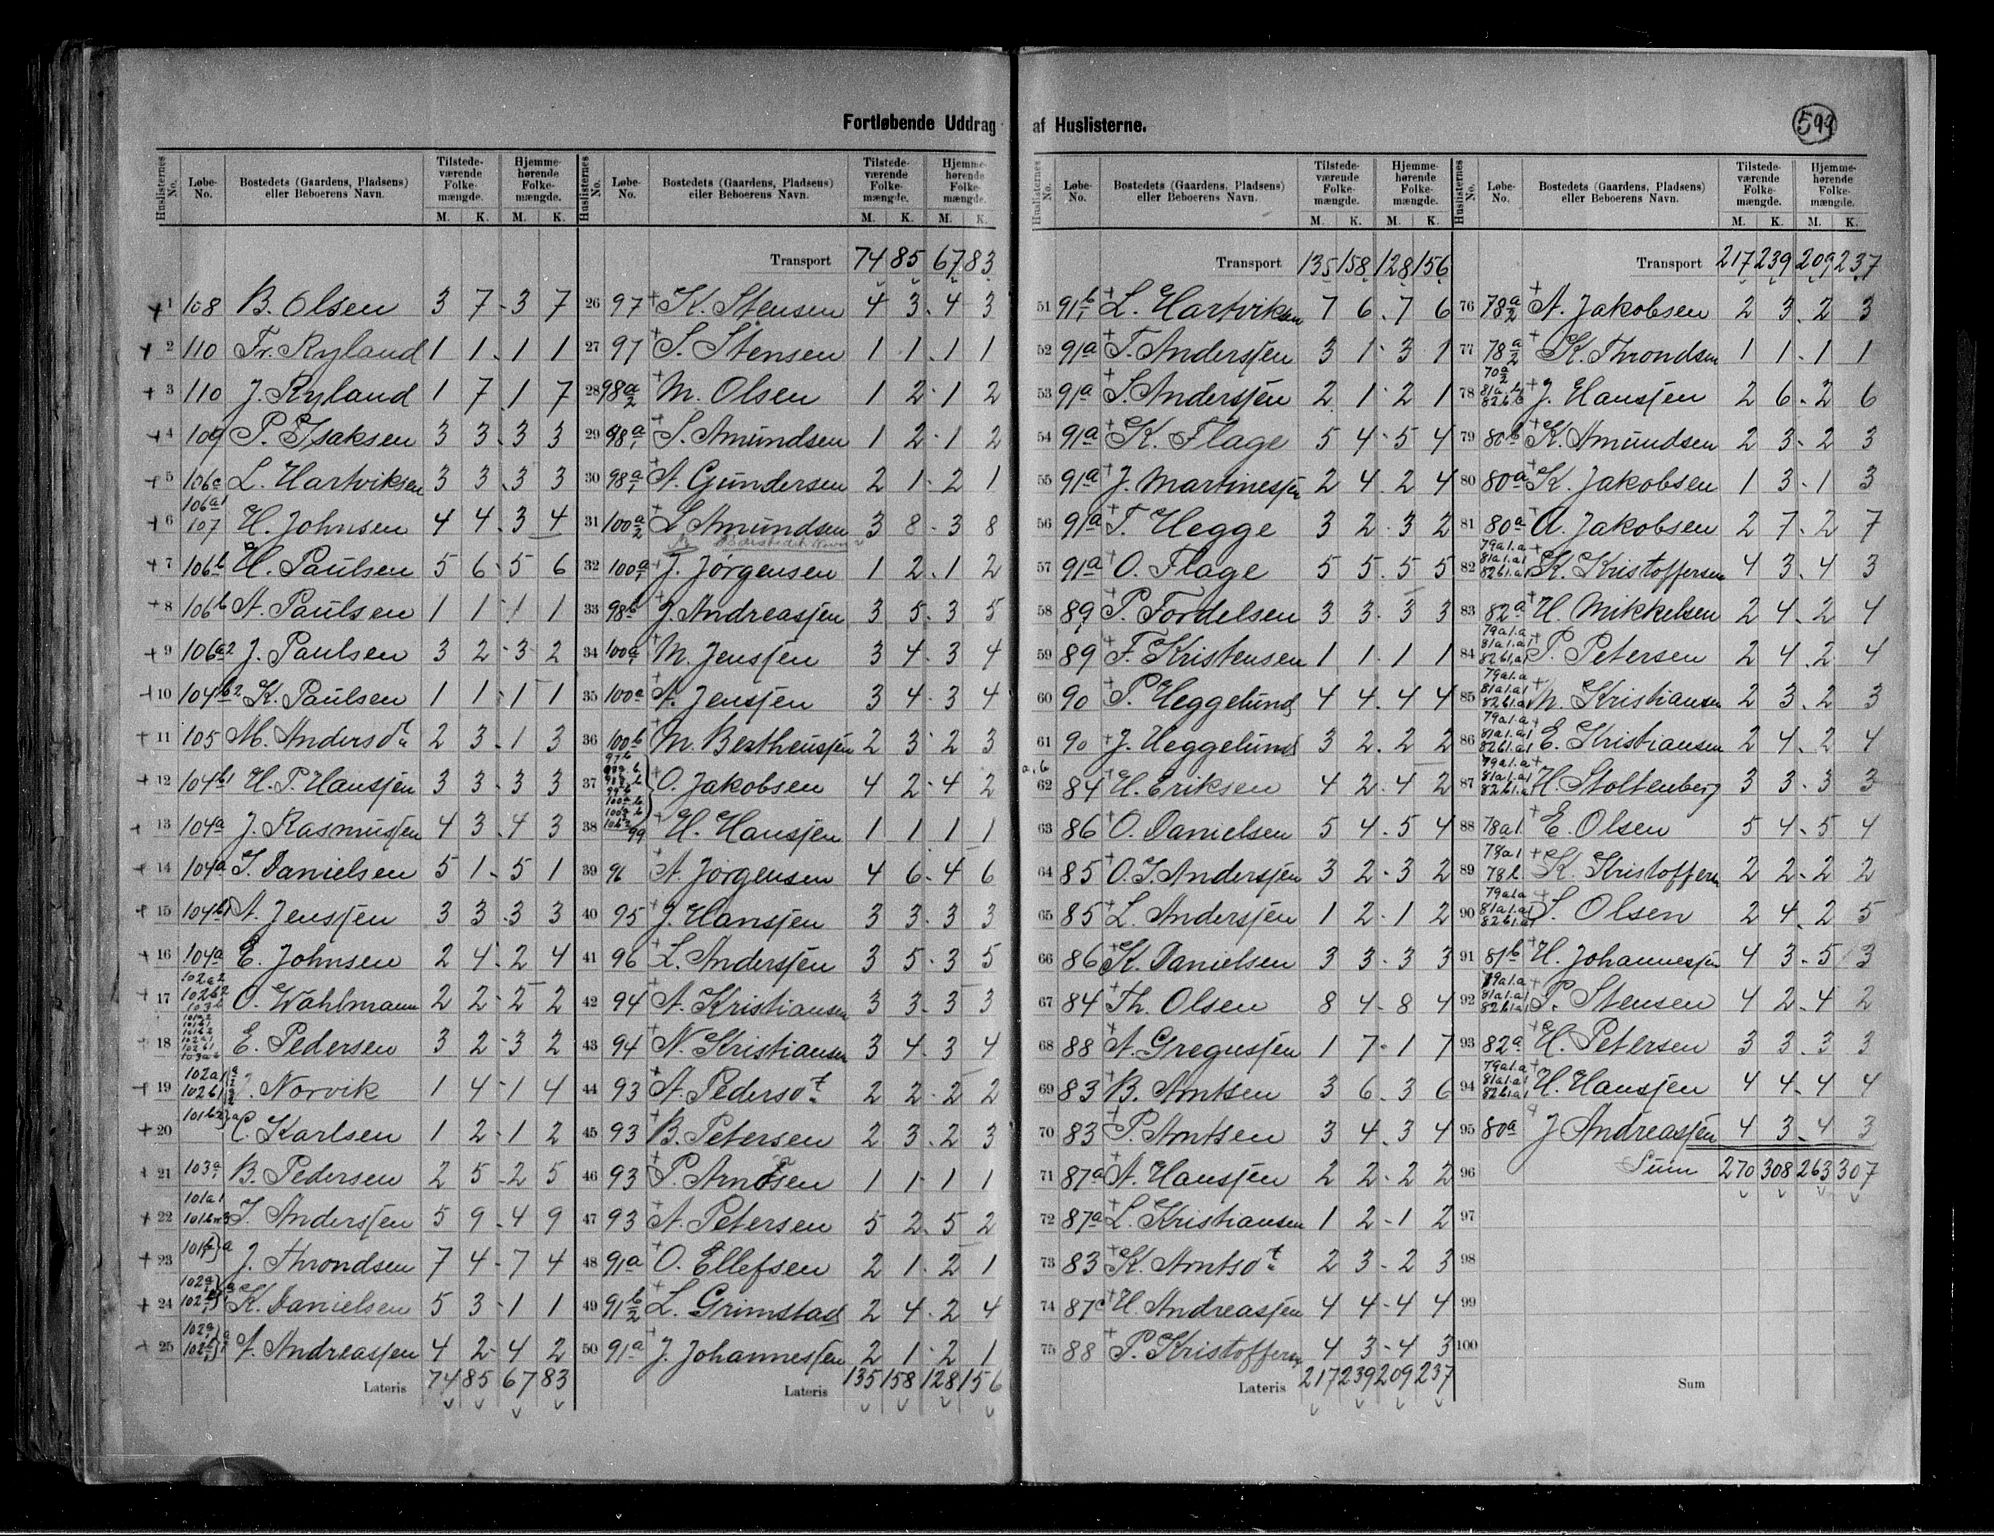 Fortløbende Uddrag af Huslisterne.
599
Huslisternes No. Løbe-No. Bostedets (Gaardens, Pladsens) eller Beboerens Navn. Tilstedeværende Folkemængde. M. K. Hjemmehørende Folkemængde. M. K.
1 108 B. Olsen 3 7 - 3 7
2 110 Fr. Ryland 1 1 - 1 1
3 110 J. Ryland 1 7 1 7
4 109 P. Isaksen 3 3 - 3 3
5 106a L. Hartviksen 3 3 3 3
6 106a1 107 H. Johnsen 4 4 - 3 4
7 106b H. Paulsen 5 6 - 5 6
8 106b A. Paulsen 1 1 1 1
9 106a2 J. Paulsen 3 2 - 3 2
10 104b2 K. Paulsen 1 1 - 1 1
11 105 M. Andersdt. 2 3 - 1 3
12 104b1 H. P. Hansjen 3 3 - 3 3
13 104a J. Rasmusjen 4 3 - 4 3
14 104a J. Danielsen 5 1 - 5 1
15 104b1 A. Jensjen 3 3 - 3 3
16 104a E. Johnsen 2 4 - 2 4
17 102a2 102b2 103b O. Wahlmann 2 2 - 2 2
18 E. Pedersen 3 2 - 3 2
19 102a1 102b1 Norvik 1 4 - 1 4
20 101b2 Karlsen 1 2 - 1 2
21 103a B. Pedersen 2 5 - 2 5
22 101a1 J. Andersjen 5 9 - 4 9
23 J. Throndsen 7 4 - 7 4
24 K. Danielsen 5 3 - 1 1
25 A. Andreasjen 4 2 - 4 2
Lateris 74 85 67 83
Huslisternes No. Løbe-No. Bostedets (Gaardens, Pladsens) eller Beboerens Navn. Tilstedeværende Folkemængde. M. K. Hjemmehørende Folkemængde. M. K.
Transport 74 85 67 83
26 97 K. Stensen 4 3 - 4 3
27 97 S. Stensen 1 1 - 1 1
28 98a/2 M. Olsen 1 2 - 1 2
29 98a/1 S. Amundsen 1 2 - 1 2
30 98a/1 A. Gundersen 2 1 - 2 1
31 100a/2 L. Amundsen 3 8 - 3 8
32 100a/1 J. Jørgensen 1 2 - 1 2
33 98b J. Andreasjen 3 5 - 3 5
34 100a/1 M. Jensjen 3 4 - 3 4
35 100a A. Jensjen 3 4 - 3 4
36 100b M. Bertheusjen 2 3 - 2 3
37 O. Jakobsen 4 2 - 4 2
38 99 H. Hansjen 1 1 1 1
39 96 A. Jørgensen 4 6 - 4 6
40 95 J. Hansjen 3 3 - 3 3
41 96 L. Andersjen 3 5 - 3 5
42 94 A. Kristiansen 3 3 - 3 3
43 94 N. Kristiansen 3 4 - 3 4
44 93 A. Pedersdt. 2 2 - 2 2
45 93 B. Petersen 2 3 - 2 3
46 93 P. Arntsen 1 1 - 1 1
47 93 A. Petersen 5 2 - 5 2
48 91a O. Ellefsen 2 1 - 2 1
49 91b/2 L. Grimstad 2 4 - 2 4
50 91a J. Johannesjen 2 1 - 2 1
Lateris 135 158 128 156
Huslisternes No. Løbe-No. Bostedets (Gaardens, Pladsens) eller Beboerens Navn. Tilstedeværende Folkemængde. M. K. Hjemmehørende Folkemængde. M. K.
Transport 135 158 128 156
51 91b/1 L. Hartviksen 7 6 - 7 6
52 91a T. Andersjen 3 1 - 3 1
53 91a S. Andersjen 2 1 - 2 1
54 91a K. Flage 5 4 - 5 4
55 91a J. Martinesjen 2 4 - 2 4
56 91a T. Hegge 3 2 - 3 2
57 91a O. Flage 5 5 - 5 5
58 89 P. Fordelsen 3 3 - 3 3
59 89 F. Kristensen 1 1 - 1 1
60 90 P. Heggelund 4 4 - 4 4
61 90 J. Heggelund 3 2 - 2 2
62 84 H. Eriksen 4 2 - 4 2
63 86 O. Danielsen 5 4 - 5 4
64 85 O. J. Andersjen 3 2 - 3 2
65 85 L. Andersjen 1 2 - 1 2
66 86 K. Danielsen 3 3 - 3 3
67 84 Th. Olsen 8 4 - 8 4
68 88 A. Gregusjen 1 7 - 1 7
69 83 B. Arntsen 3 6 - 3 6
70 83 P. Arntsen 3 4 - 3 4
71 87a A. Hansjen 2 2 - 2 2
72 87a L. Kristiansen 1 2 - 1 2
73 83 K. Arntsdt. 2 3 - 2 3
74 87c H. Andreasjen 4 4 - 4 4
75 88 P. Kristoffersen 4 3 - 4 3
Lateris 217 239 209 237
Huslisternes No. Løbe-No. Bostedets (Gaardens, Pladsens) eller Beboerens Navn. Tilstedeværende Folkemængde. M. K. Hjemmehørende Folkemængde. M. K.
Transport 217 239 209 237
76 78a/2 A. Jakobsen 2 3 - 2 3
77 78a/2 K. Throndsen 1 1 - 1 1
78 J. Hansjen 2 6 - 2 6
79 80b K. Amundsen 2 3 - 2 3
80 80a K. Jakobsen 1 3 - 1 3
81 80a A. Jakobsen 2 7 - 2 7
82 79a1.a 81a1.a1 82b1.a1 K. Kristoffersen 4 3 - 4 3
83 82a H. Mikkelsen 2 4 - 2 4
84 79a1.a 81a1.a1 82b1.a1 P. Petersen 2 4 - 2 4
85 79a1.a 81a1.a1 82b1.a1 M. Kristiansen 2 3 - 2 3
86 79a1.a 81a1.a1 82b1.a1 E. Kristiansen 2 4 - 2 4
87 79a1.a 81a1.a1 82b1.a1 H. Stoltenberg 3 3 - 3 3
88 78a1. E. Olsen 5 4 - 5 4
89 78a1 78b K. Kristoffersen 2 2 - 2 2
90 79a1.a 81a1.a1 82b1.a1 S. Olsen 2 4 - 2 5
91 81b H. Johannesjen 4 3 - 5 3
92 79a1.a 81a1.a1 82b1.a1 P. Stensen 4 2 - 4 2
93 82a H. Petersen 3 3 - 3 3
94 79a1.a 81a1.a1 82b1.a1 H. Hansjen 4 4 - 4 4
95 80a J. Andreasjen 4 3 - 4 3
96 Sum 270 308 263 307
97
98
99
100
Sum